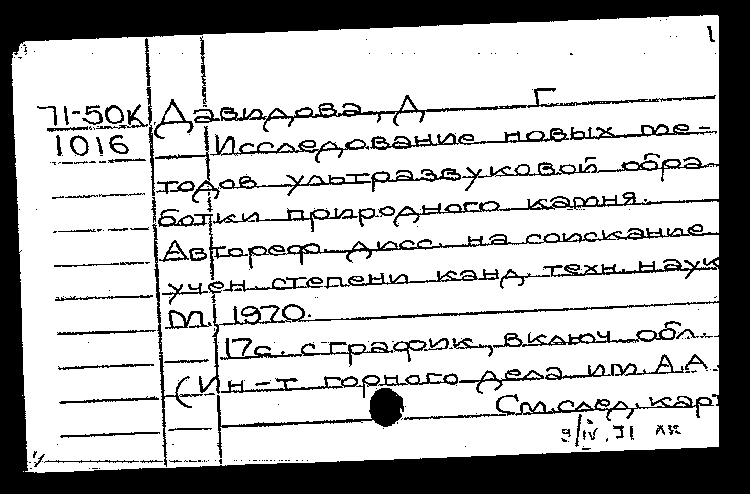 1
71-50К Давидова, Д Г
1016 Исследование новых ме-
тодов ультразвуковой обра
ботки природного камня.
Автореф. дисс. на соискание
учен. степени канд. техн. наук
М. 1970.
17 с. с график., включ. обл.
(Ин-т горного дела им. А.А.
См. след. карт
9/IV.71